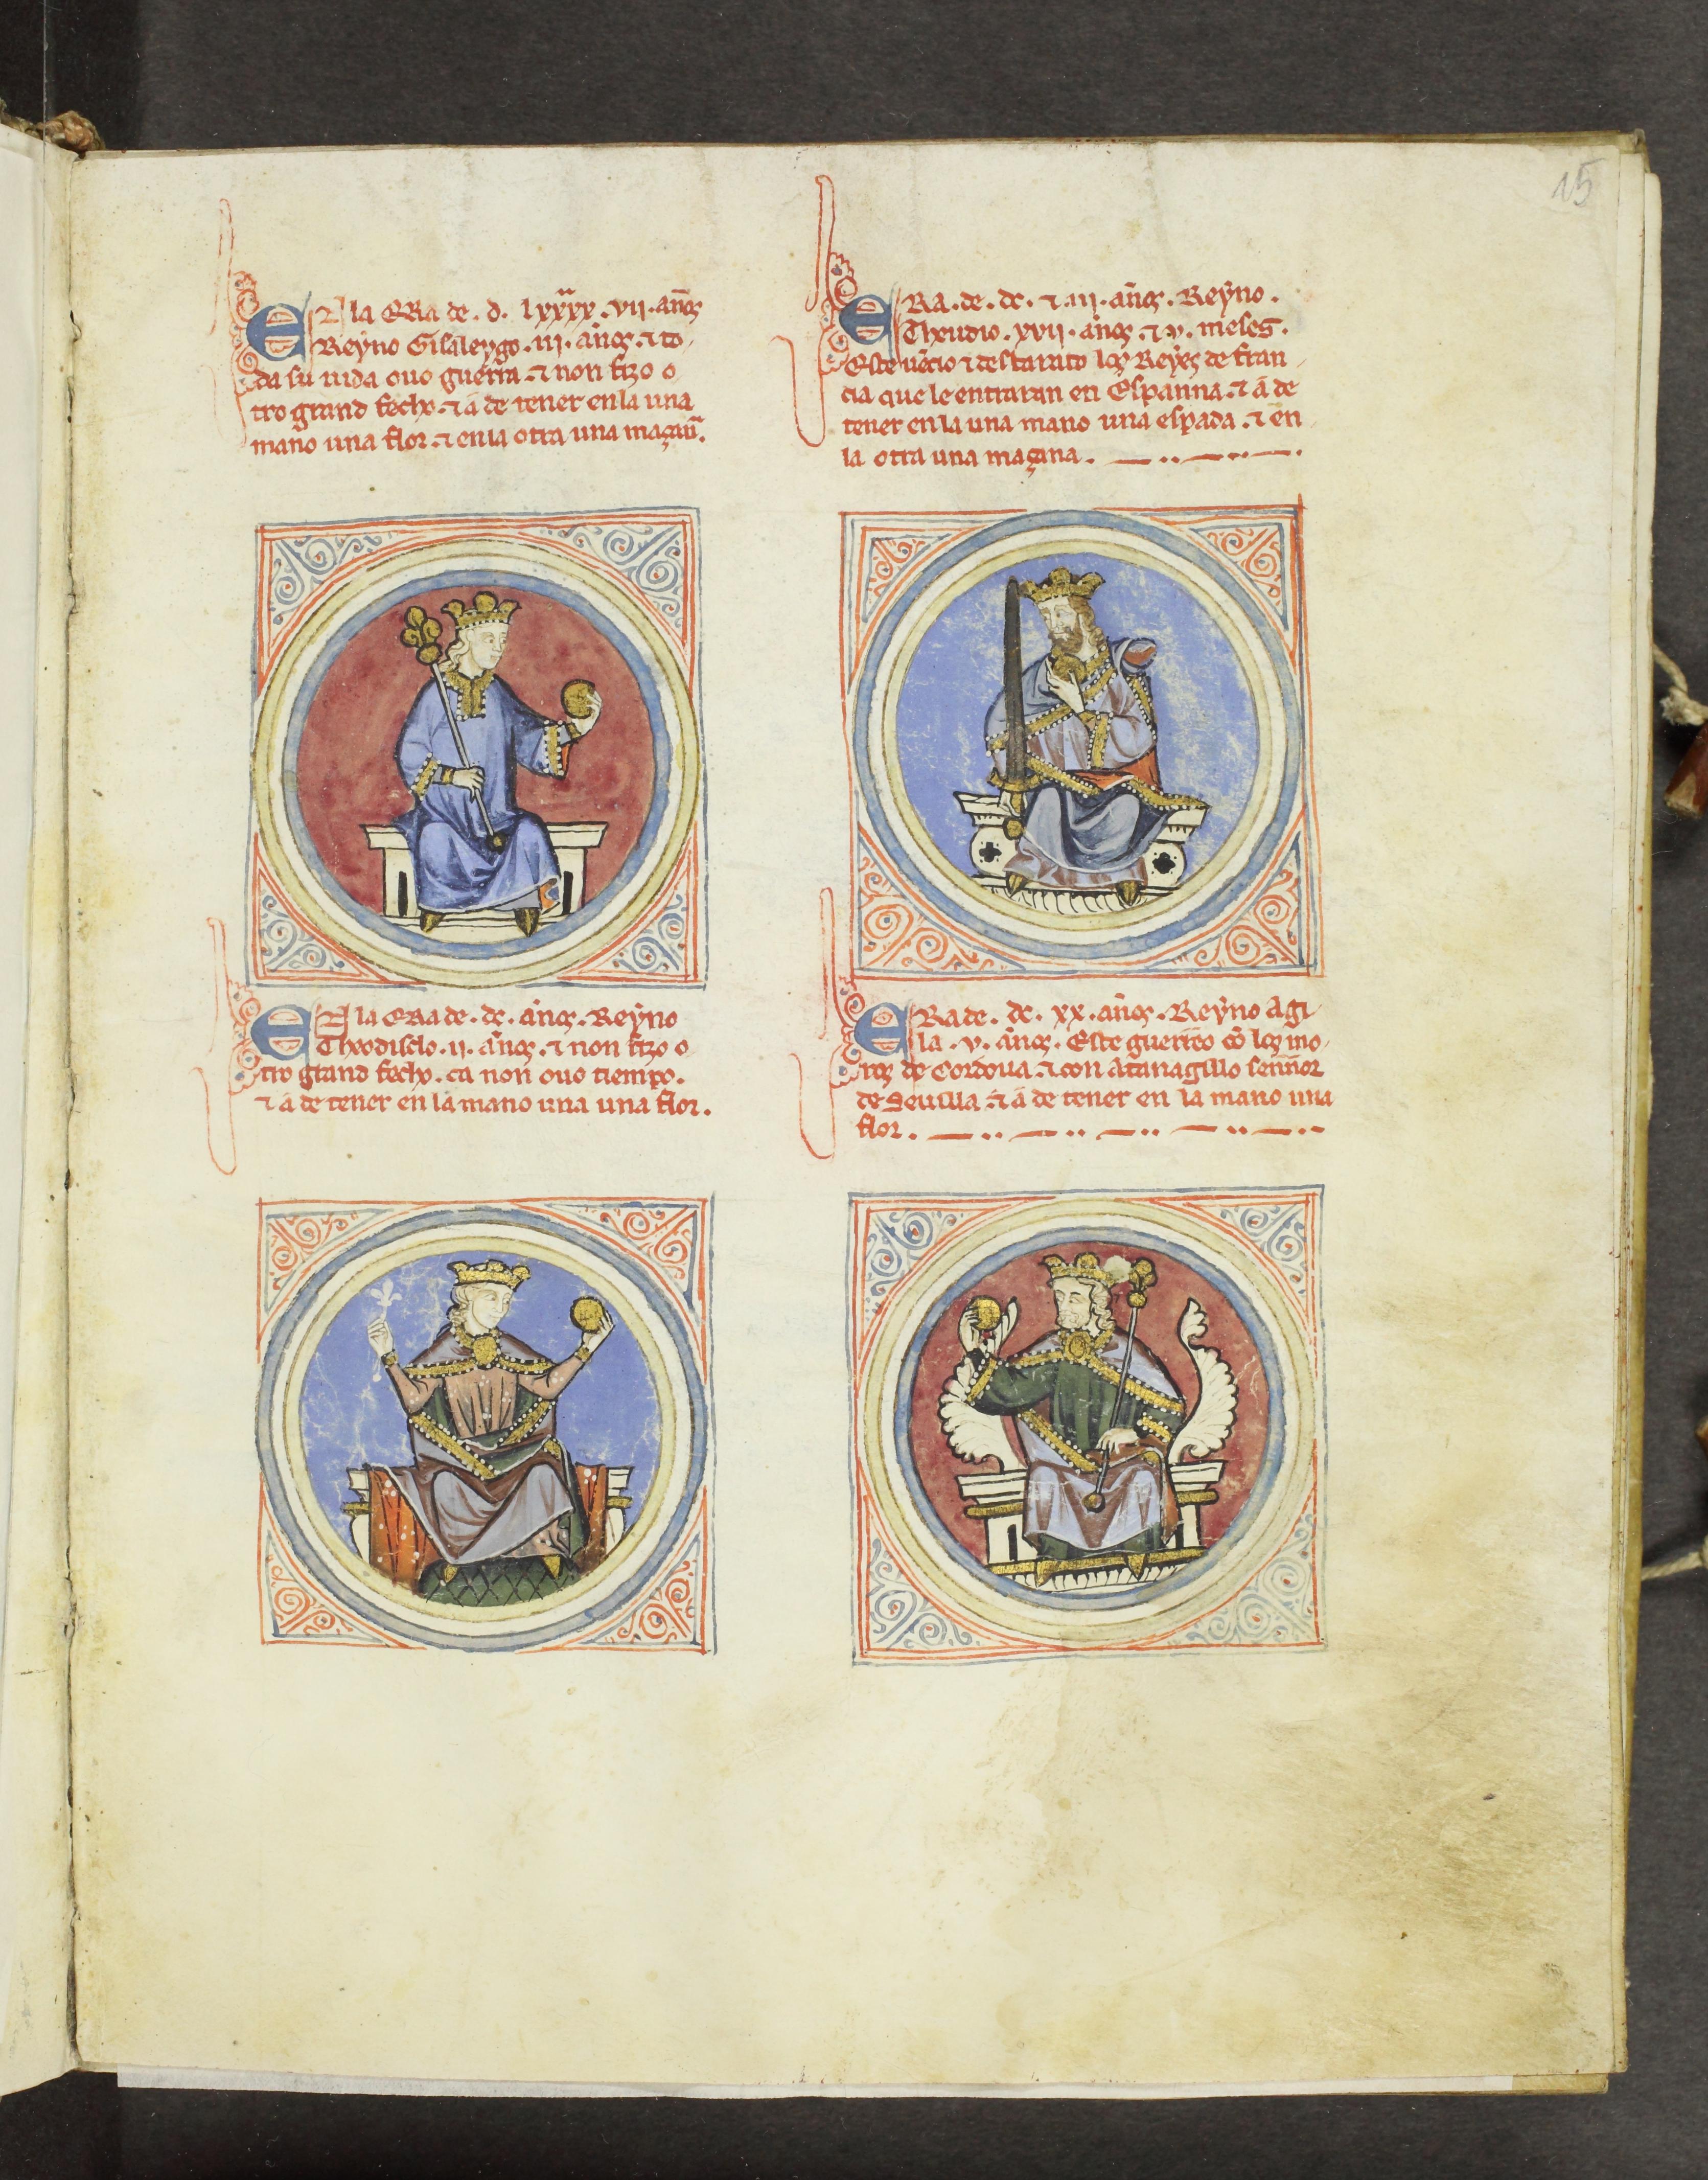 15
EN la ERA de . d . lxxxx . vii . an̄os
Reẏno Gisaleygo . iii . an̄os . ⁊ to-
da su uida ouo guerra . ⁊ non fizo o
tro grand fecho . ⁊ ā de tener en la una
mano una flor . ⁊ en la otra una maçan̄.
ERA . de . dc . ⁊ . iii . an̄os . Reẏno .
Theudio . xvii . an̄os . ⁊ . v . meses .
Este uēcio ⁊ destarato los Reẏes de fran-
cia que le entraran en Espanna . ⁊ ā de
tener en la una mano una espada . ⁊ en
la otra una maçana .
EN la ERA de . dc . an̄os . Reẏno
Theodisclo . ii . an̄os . ⁊ non fizo o
tro grand fecho . ca non ouo tiempo .
⁊ ā de tener en la mano una una flor .
ERA de . dc . xx . an̄os . Reẏno Agi-
la . v . an̄os . Este guerreo cō los mo-
ros de Cordoua . ⁊ con Atanagillo sennor
de Seuilla . ⁊ ā de tener en la mano una
flor .